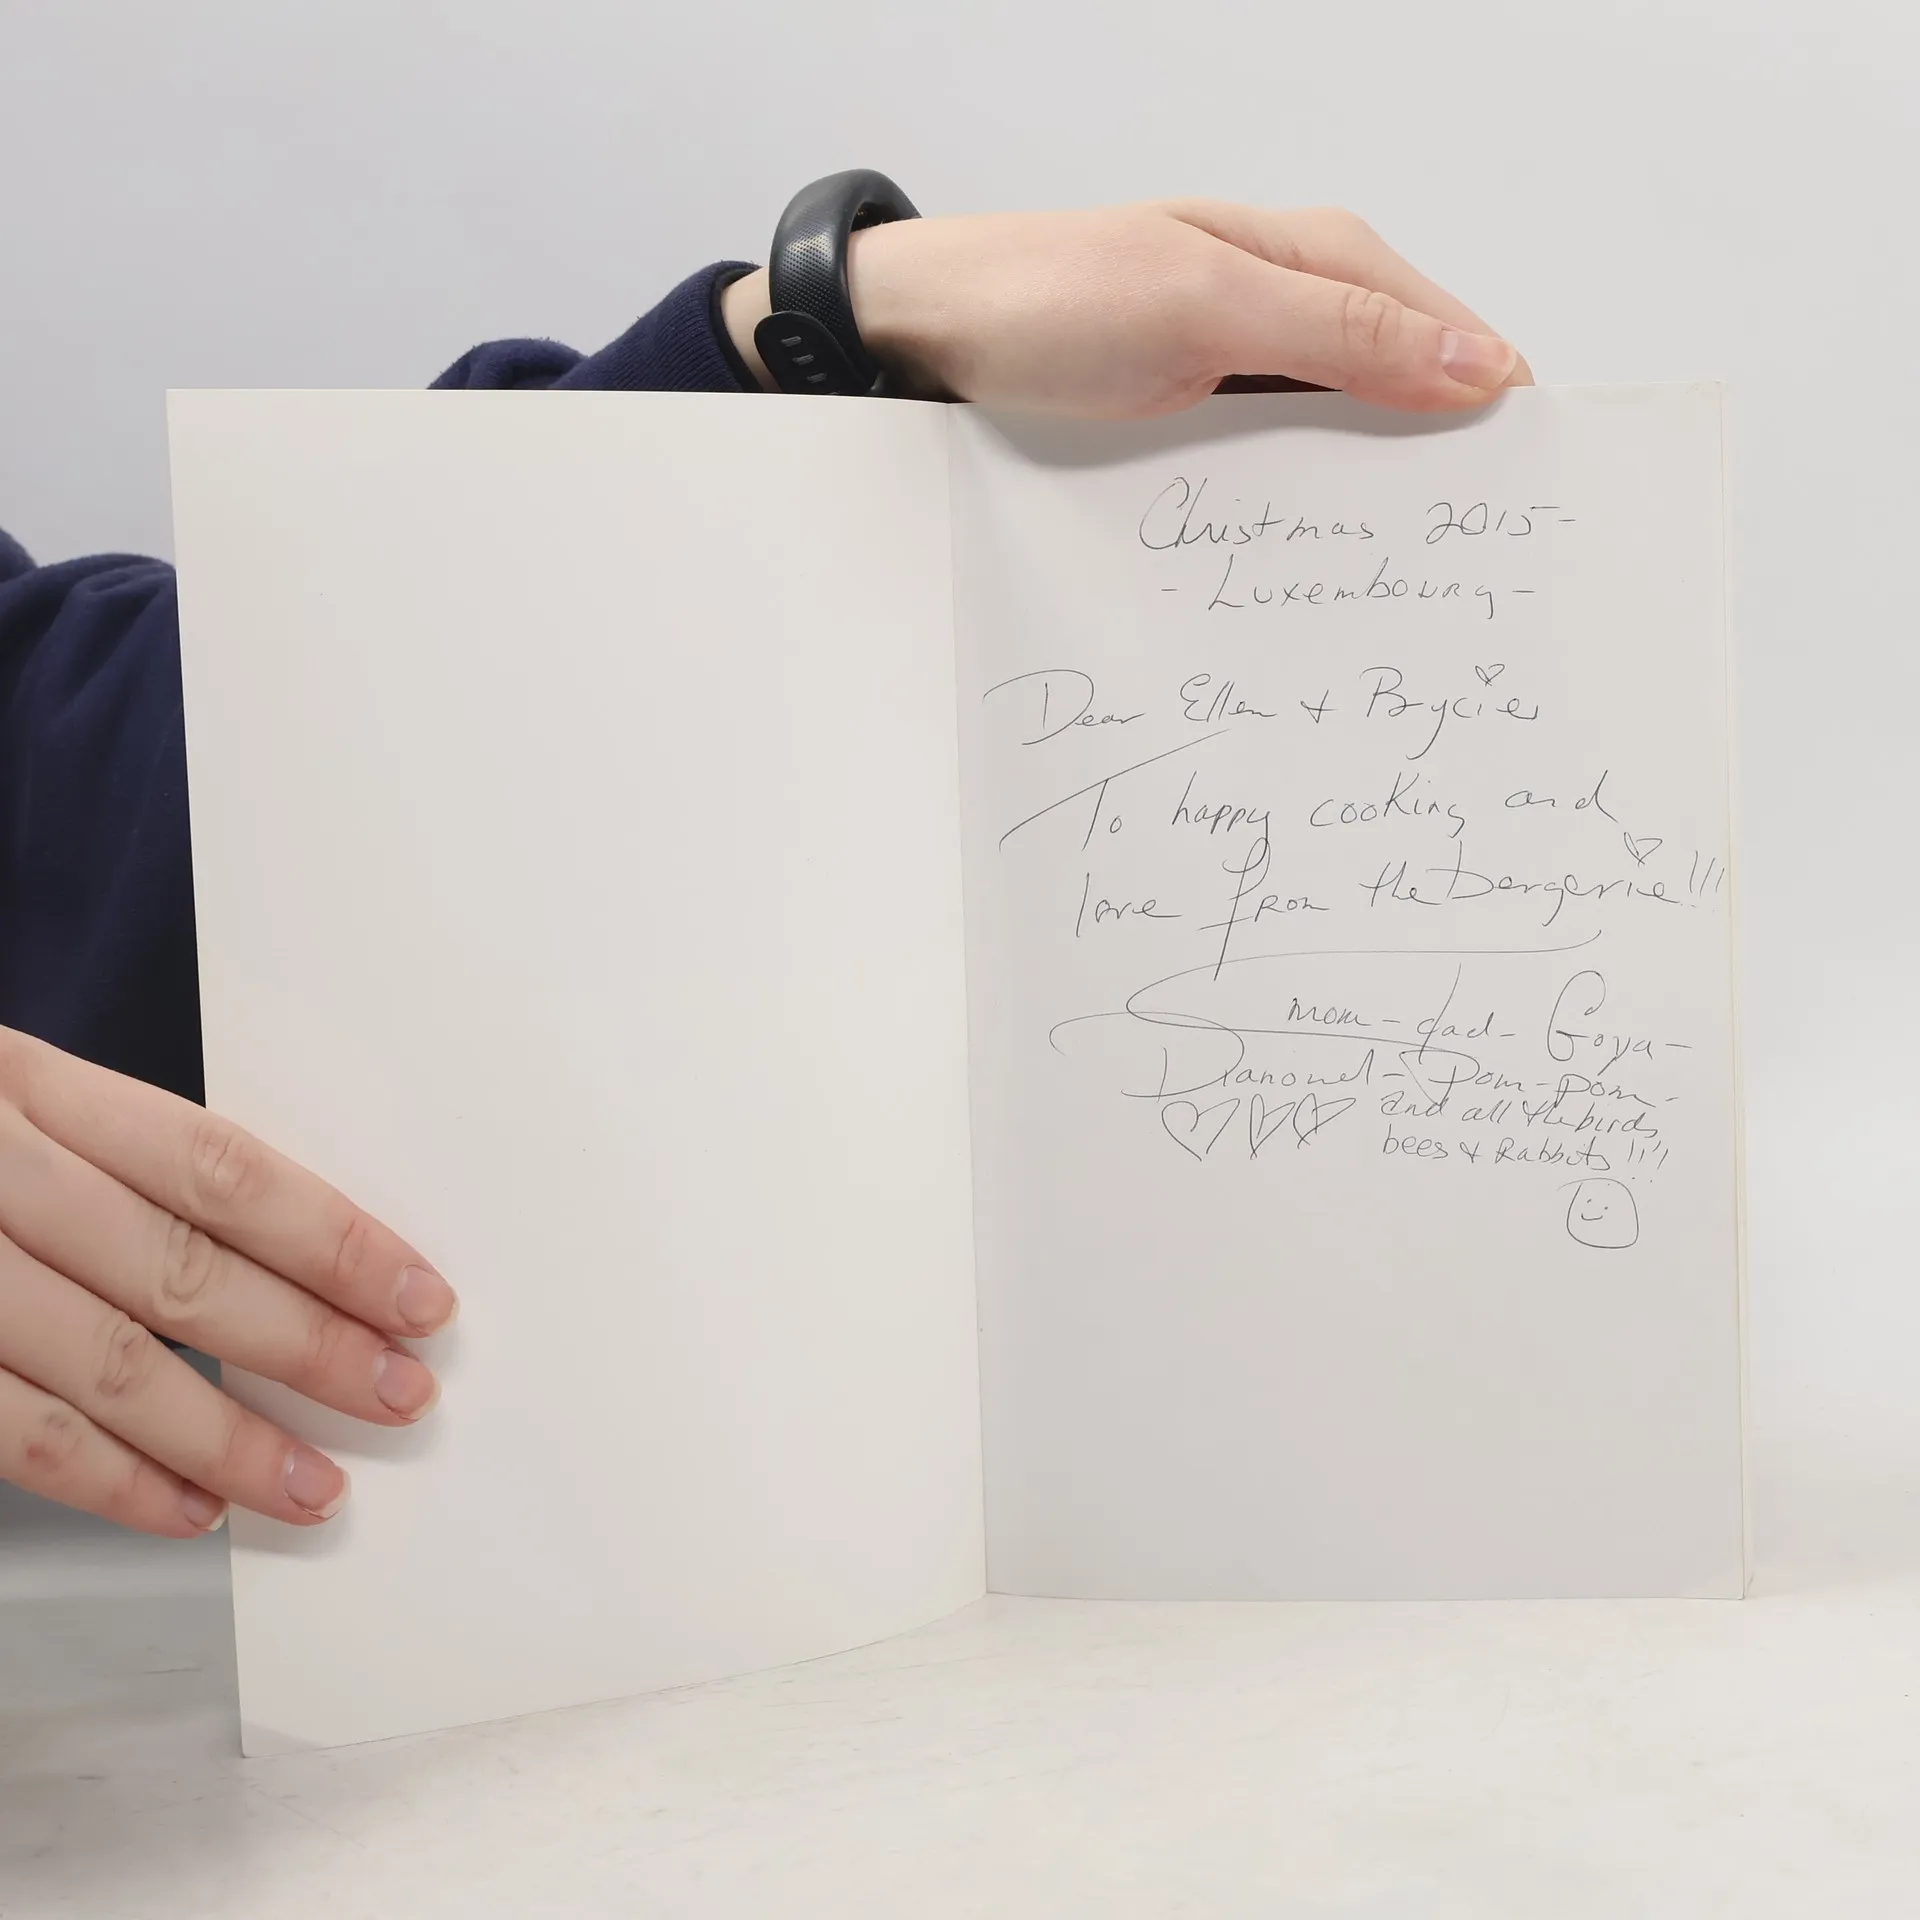 Christmas 2015-
- Luxembourg -
Dear Ellen + Brycie
To happy cooking and
love from the Bergerie!!!
mom - dad - Goya -
Pom-pom -
and all the birds,
bees & Rabbits !!!!